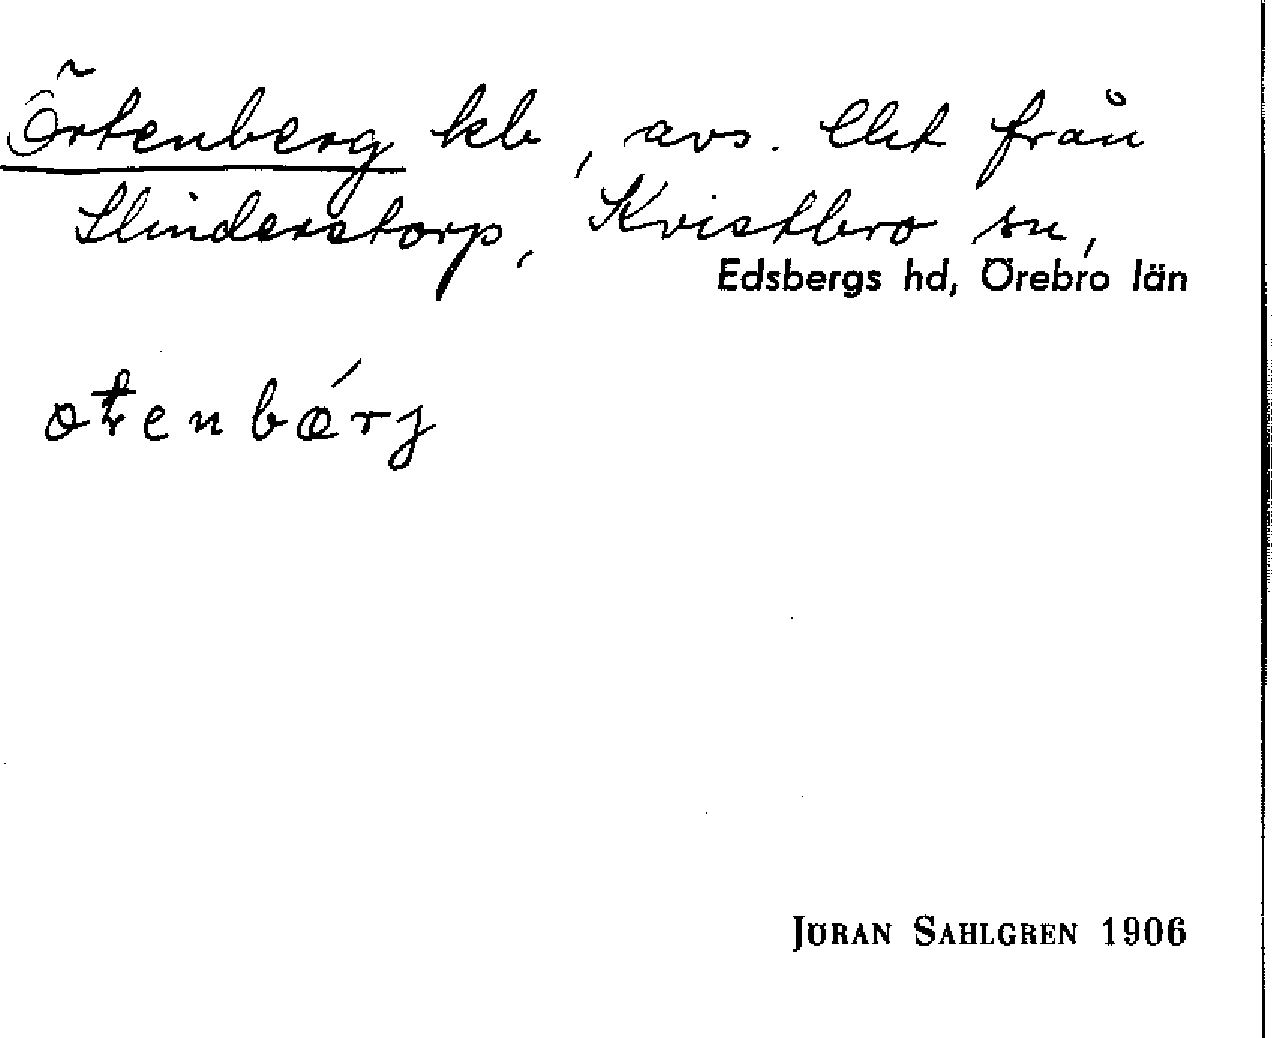 Örtenberg kb, avs. lht från
Slinderstorp, Kvistbro sn,
Edsbergs hd, Örebro län
JÖRAN SAHLGREN 1906